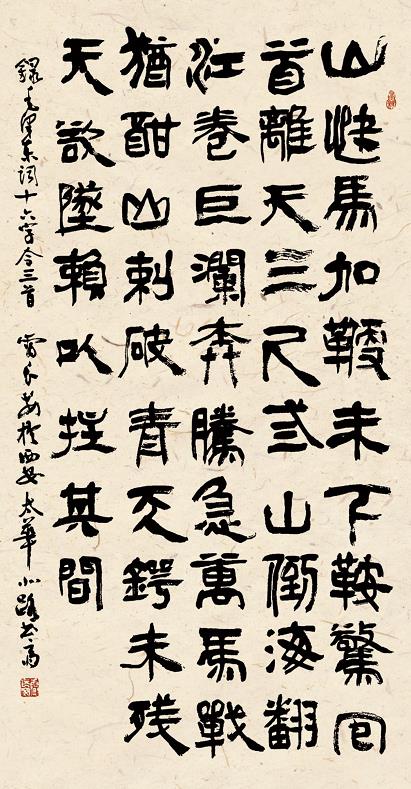 山快馬加鞭未下鞍驚回
首離天三尺弎山倒海翻
江卷巨瀾奔騰急萬馬戰
猶酣山刺破青天鍔未残
天欲墜賴以拄其間
錄毛澤東詞十六字令三首 於西安太華北路